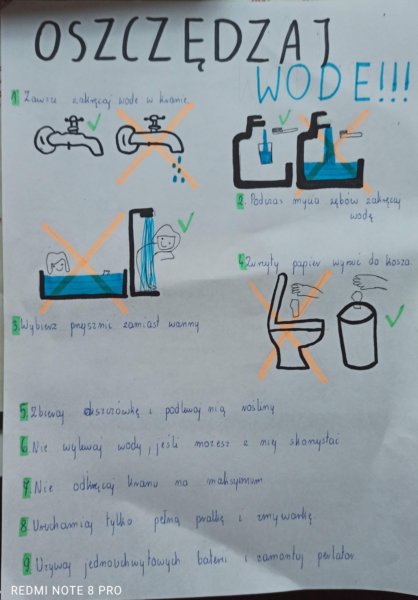 OSZCZĘDZAJ
WODE!!!
1. Zawsze zakręcaj wode w kranie.
2. Podczas mycia zębów zakręcaj
wodę
4. Zużyty papier wyrzuć do kosza.
3. Wybierz prysznic zamiast wanny
5. Zbieraj deszczówkę i podlewaj nią rośliny
6. Nie wylewaj wody, jeśli możesz z niej skorzystać
7. Nie odkręcaj kranu na maksymum
8. Uruchamiaj tylko pełną pralkę i zmywarkę.
9. Używaj jednouchwytowych baterii i zamontuj perlator
REDMI NOTE 8 PRO